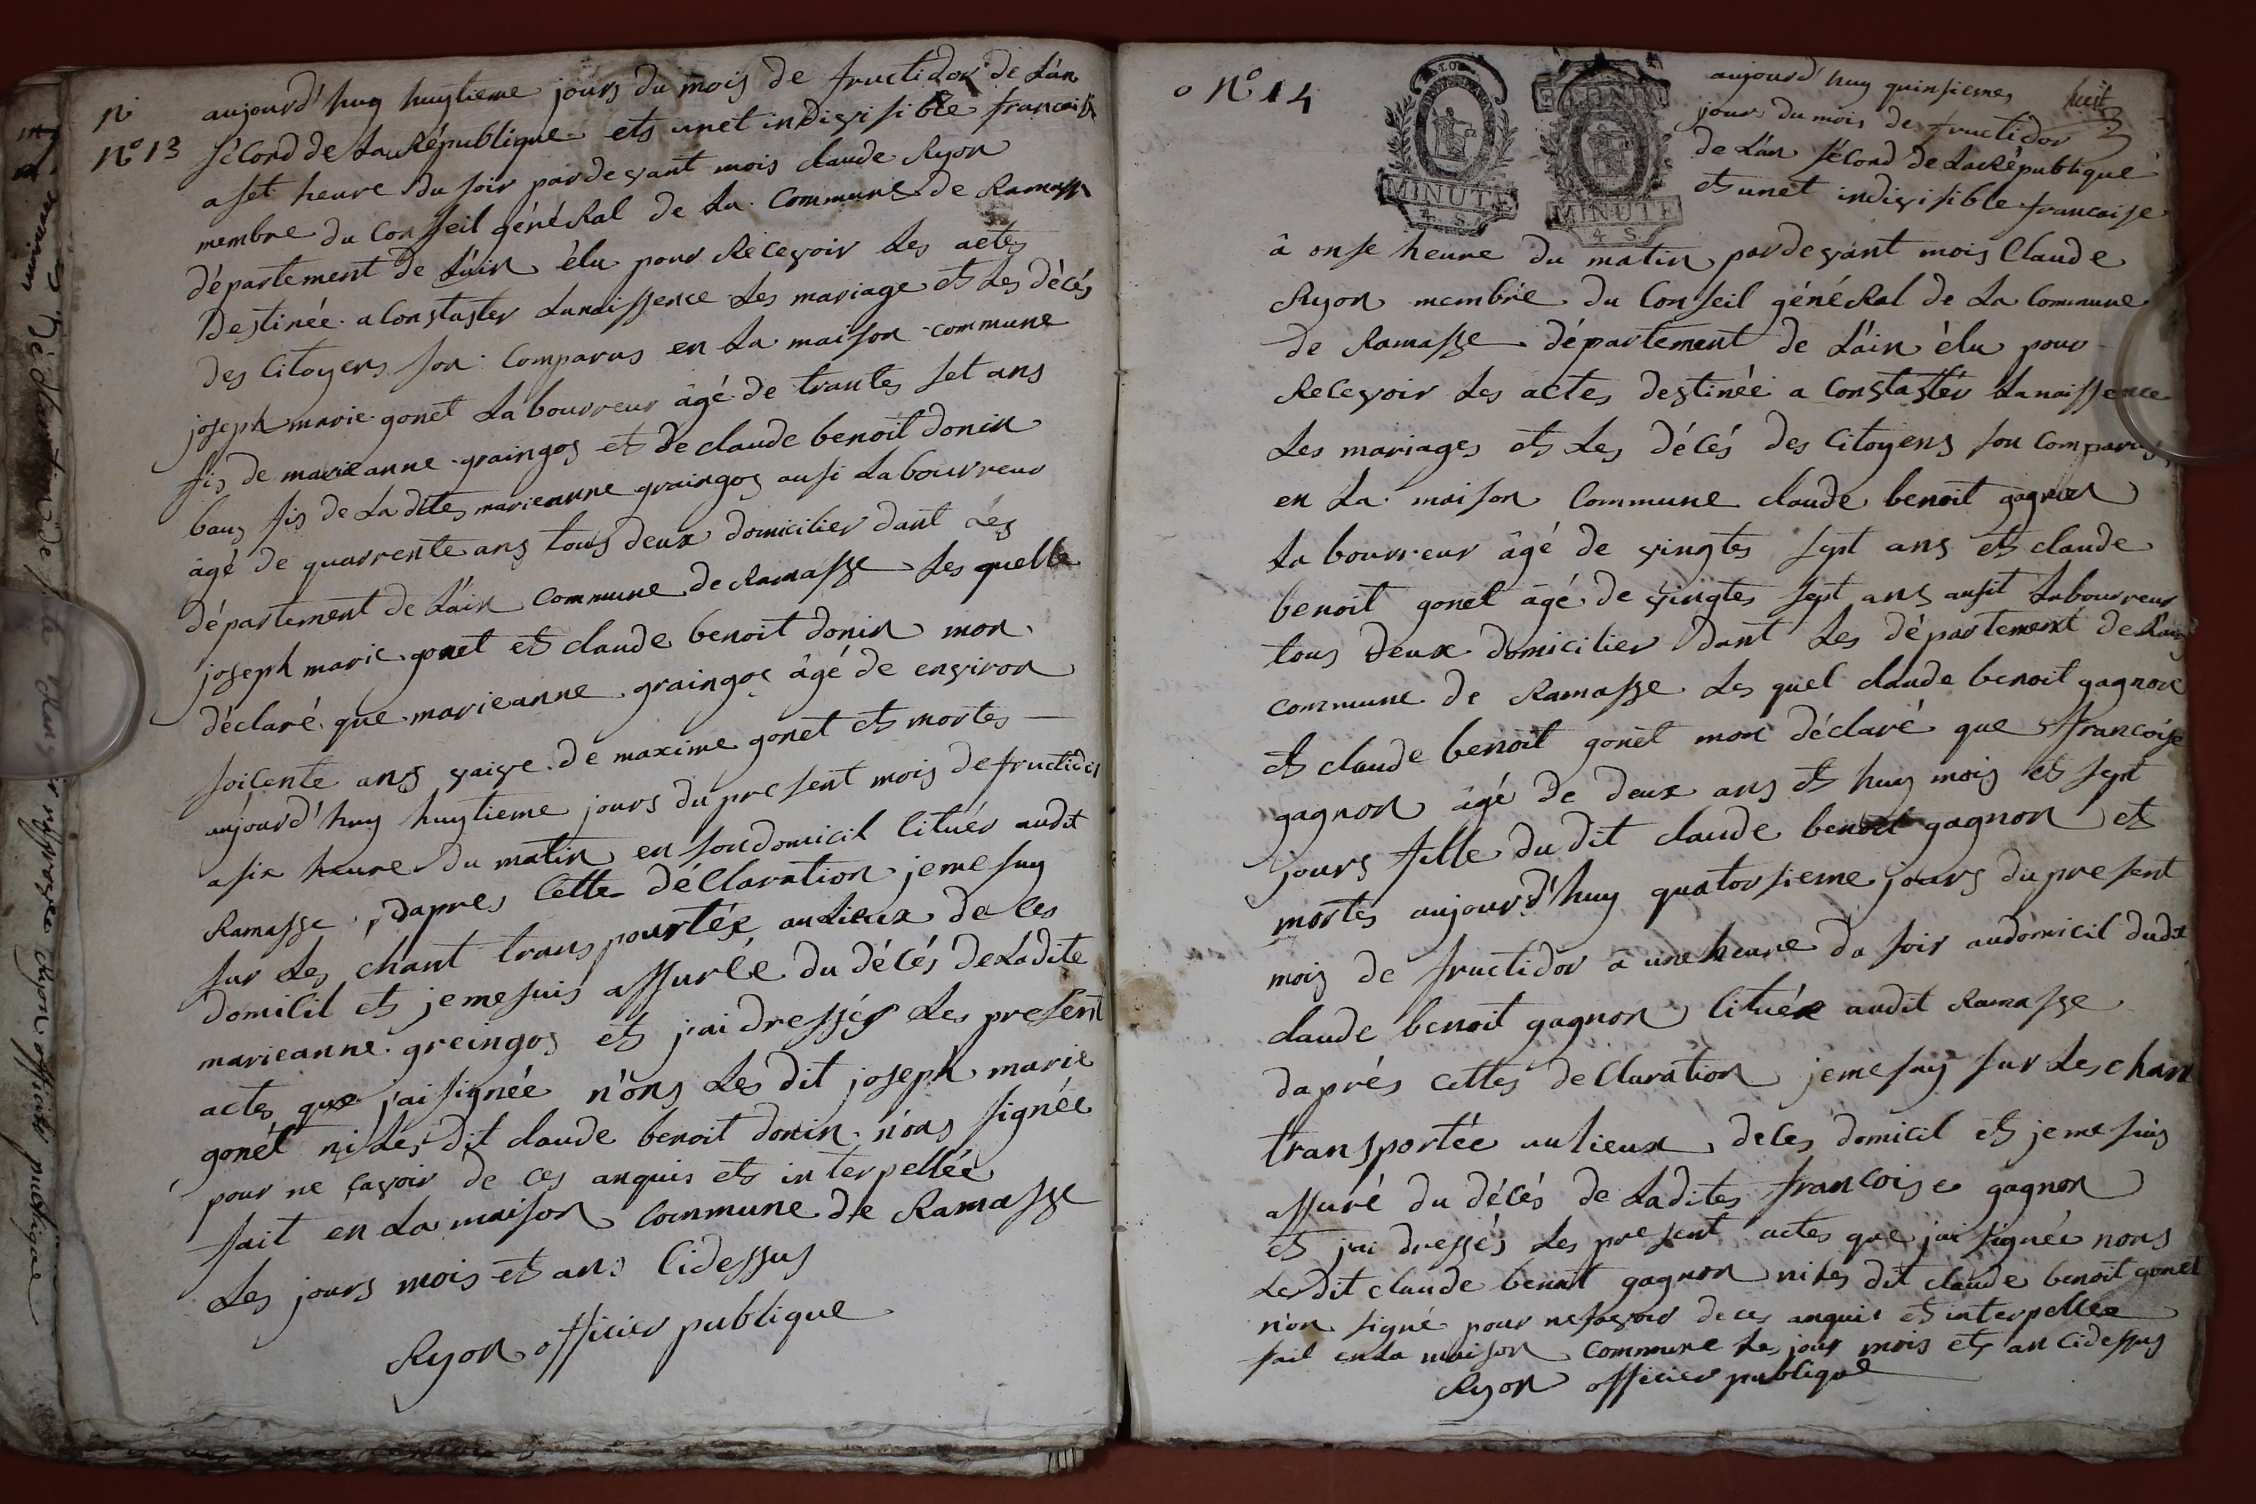 N
N° 13
aujourd'huy huytieme jours du mois de fructidor de L'an
sécond de La République ets unet indivisible francaise
a set heure du soir pardevant mois claude Ryon
membre du Conseil général de La Commune de Ramasse
département de L'ain élu pour Recevoir Les actes
destinée a Constaster Lanaissence Les mariage ets Les décés
des Citoyens son Comparus en La maison commune
joseph marie gonet Labourreur âgé de trantes set ans
fis de marieanne graingos ets de claude benoit donin
baus fis de La dites marieanne graingos ausi Labourreur
âgé de quarrente ans tous deux domicilier dant Les
département de L'ain commune de Ramasse Les quelle
joseph marie gonet ets claude benoit donin mon
déclaré que marieanne graingos âgé de environ
soicente ans vaive de maxime gonet ets mortes
aujourd'huy huytieme jours du present mois de fructidor
a six heure du matin en son domicil Cituér audit
Ramasse, dapres Cette déClaration jeme suy
sur Les chant transpourtée au Lieux de Ces
domicil ets jeme suis assurée du décés de Ladite
marieanne greingos ets j'ai dressés Les present
actes que j'ai signée n'ons Les dit joseph marie
gonet ni Les dit claude benoit donin n'ons signée
pour ne çavoir de ces anquis ets interpellée
fait en La maison Commune de Ramasse
Les jours mois ets ans Cidessus
Ryon officier publique
N° 14
MINUTE
4. S.
MINUTE
4 S.
huit
aujourd'huy quinsieme
jour du mois de fructidor
de L'an sécond de La République
ets unet indivisible francaise
â onse heure du matin pardevant mois Claude
Ryon membre du Conseil général de La Commune
de Ramasse département de L'ain élu pour
Recevoir Les actes destinée a Constaster Lanaissence
Les mariages ets Les décés des Citoyens son Comparus
en La maison Commune claude benoit gagnon
Labourreur âgé de vingtes sept ans ets claude
benoit gonet âgé de vingtes sept ans ausit Labourreur
tous deux domicilier dant Les département de L'ain
commune de Ramasse Les quel claude benoit gagnon
ets claude benoit gonet mon déclaré que francoise
gagnon âgé de deux ans ets huy mois ets sept
jours fille du dit claude benoit gagnon ets
mortes aujourd'huy quatorsieme jours du present
mois de fructidor a une heure da soir audomicil dudit
claude benoit gagnon Cituée audit Ramasse
daprés cettes deClaration jeme suy sur Les chan
transportée au Lieux de Ces domicil ets jeme suis
assuré du décés de Ladites francoise gagnon
ets j'ai dressés Les present actes que jai signée nons
Les dit claude benoit gagnon ni Les dit claude benoit gonet
n'on signé pour ne savoir de ces anquis ets interpellée
fait en La maison commune Les jour mois ets an Cidessus
Ryon officier publique